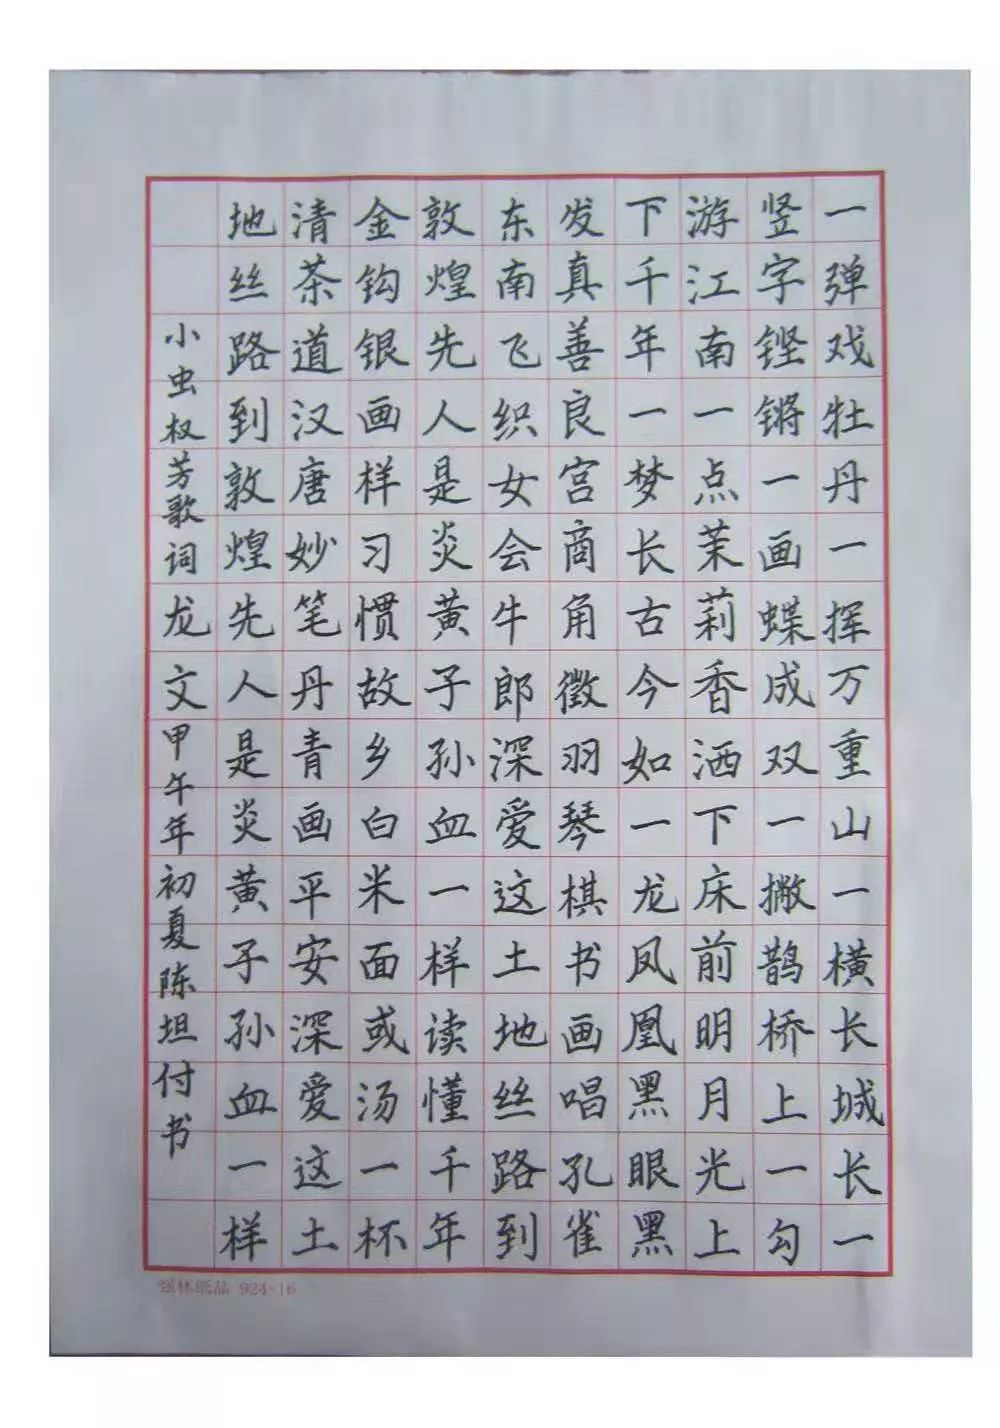 一弹戏牡丹一挥万重山一横长城长一
竖字铿锵一画蝶成双一撇鹊桥上一勾
游江南一点茉莉香洒下床前明月光上
下千年一梦长古今如一龙凤凰黑眼黑
发真善良宫商角徵羽琴棋书画唱孔雀
东南飞织女会牛郎深爱这土地丝路到
敦煌先人是炎黄子孙血一样读懂千年
金钩银画样习惯故乡白米面或汤一杯
清茶道汉唐妙笔丹青画平安深爱这土
地丝路到敦煌先人是炎黄子孙血一样
小虫权芳歌词龙文甲午年初夏陈坦付书
强林纸品 924-16